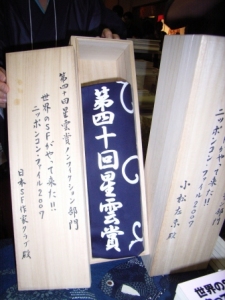 第四十回星雲賞ノンフィクション部門
世界のSFがやって来た!!
ニッポンコン・ファイル2007
日本SF作家クラブ殿
第四十回星雲賞
世界のSFがやって来た!!
ニッポンコン・ファイル2007
小松左京殿
世界のS